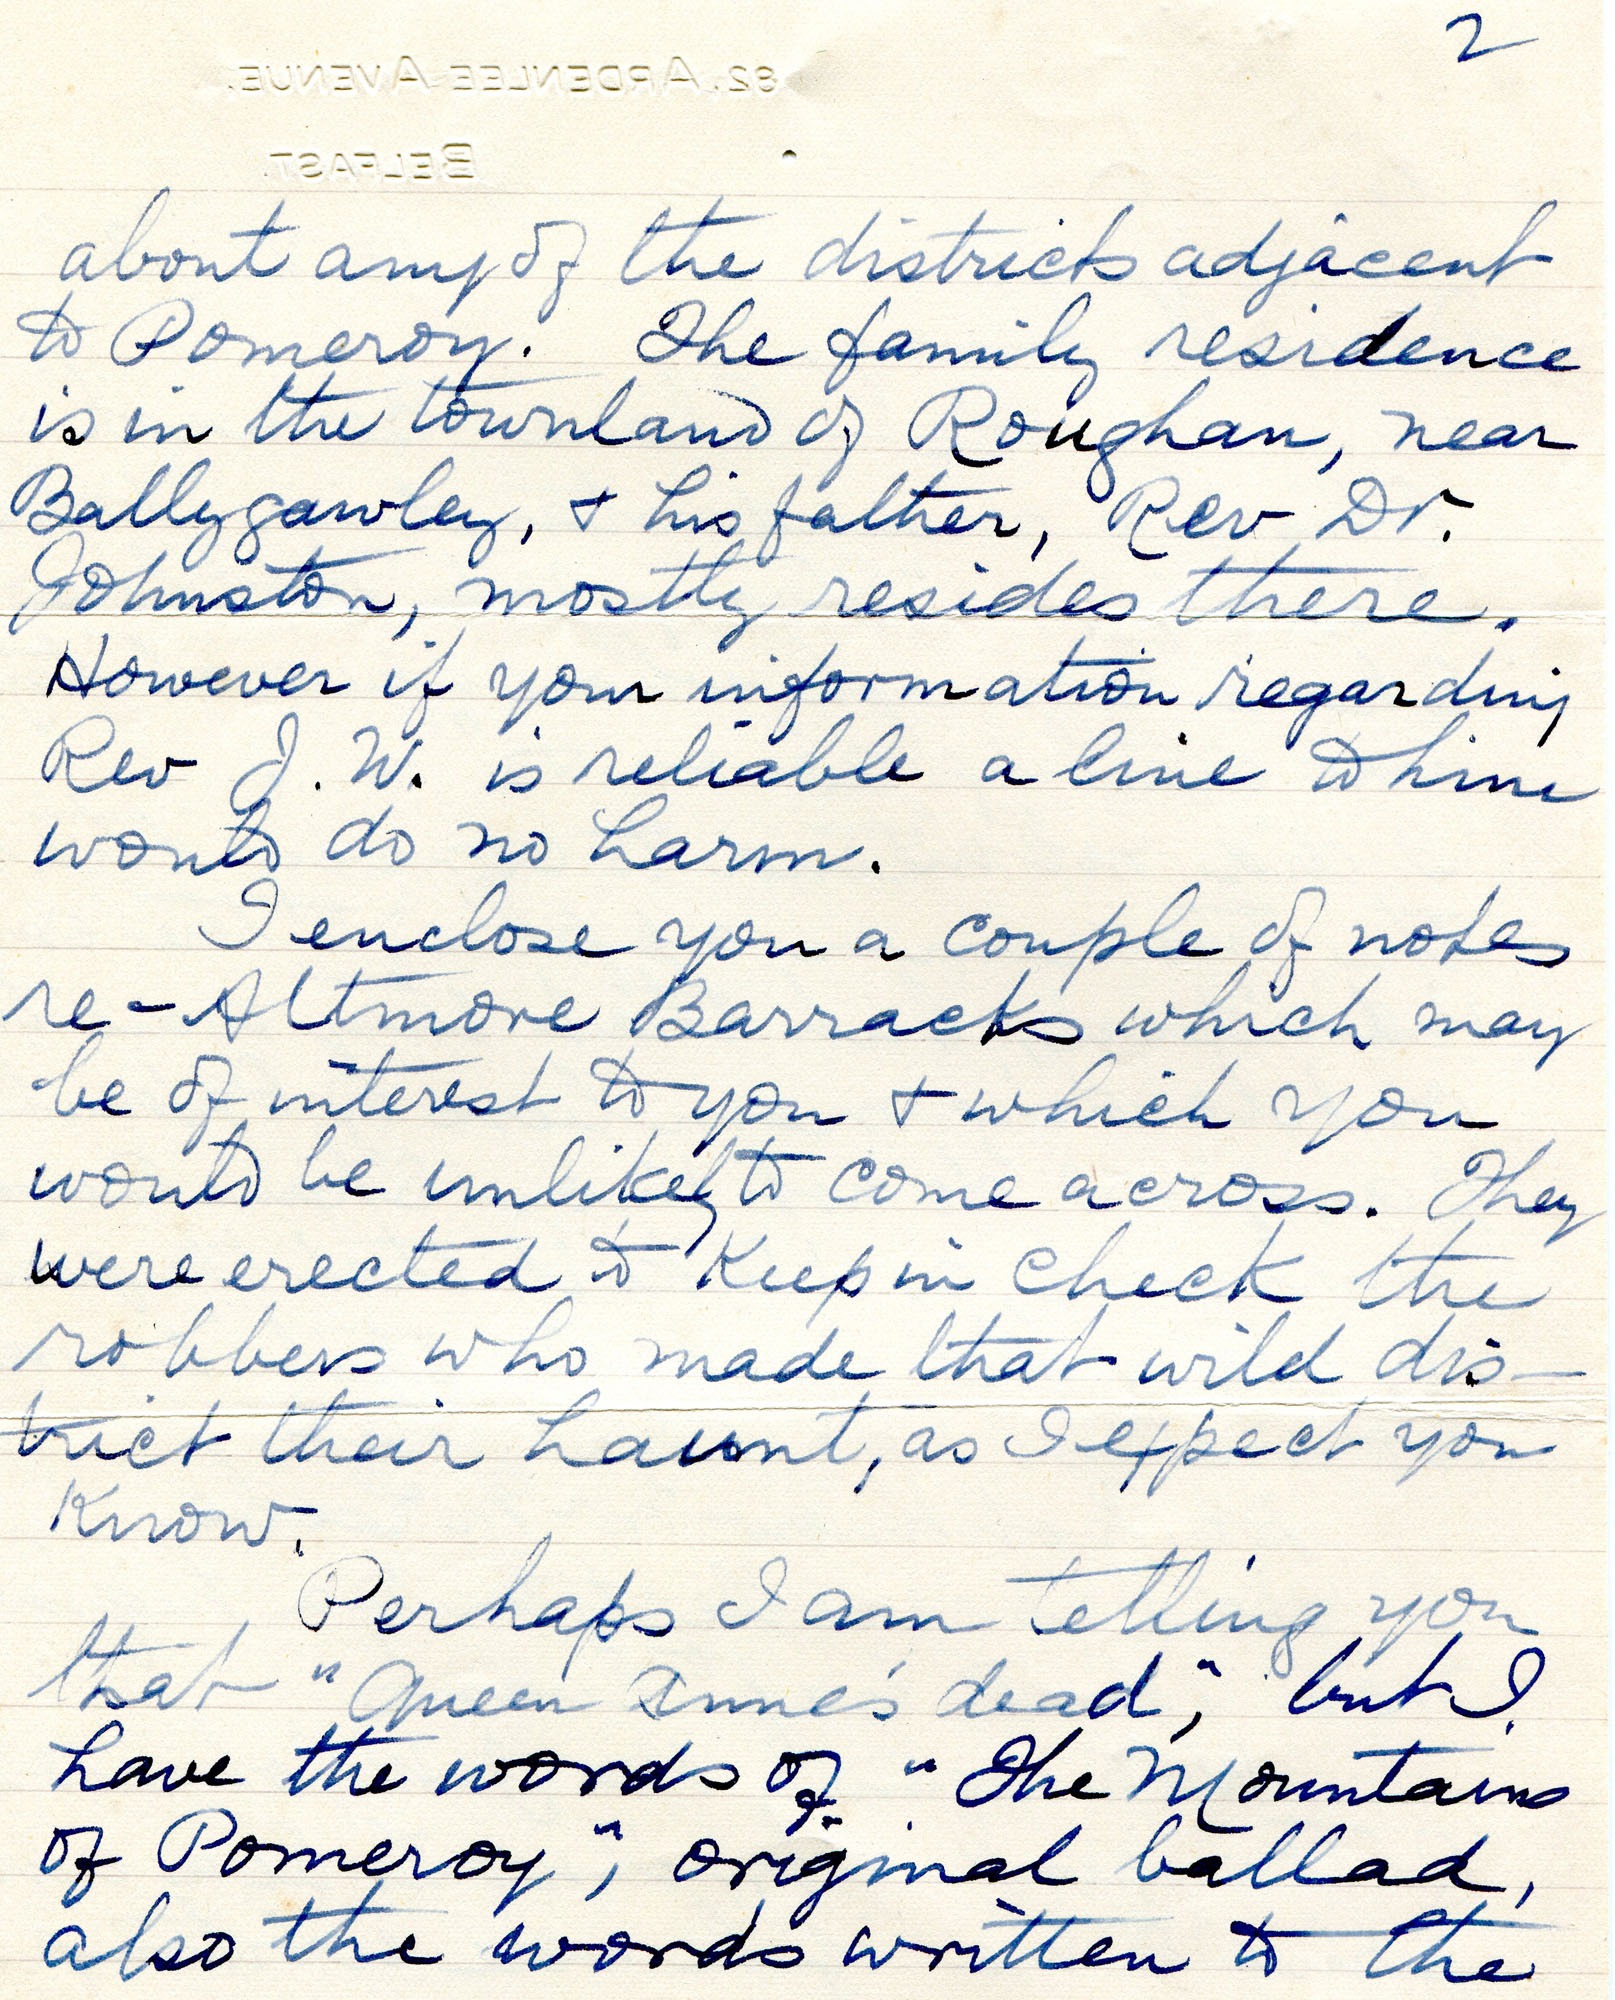 2
82, ARDENLEE AVENUE.
BELFAST.
about any of the districts adjacent
to Pomeroy. The family residence
is in the townland of Roughan, near
Ballygawley, & his father, Rev Dr.
Johnston, mostly resides there.
However if your information regarding
Rev J. W. is reliable a line to him
would do no harm.
I enclose you a couple of notes
re-Altmore Barracks which may
be of interest to you & which you
would be unlikely to come across. They
were erected to keep in check the
robbers who made that wild dis-
trict their haunt, as I expect you
know.
Perhaps I am telling you
that "Queen Anne's dead", but I
have the words of "The Mountains
of Pomeroy", original ballad,
also the words written to the